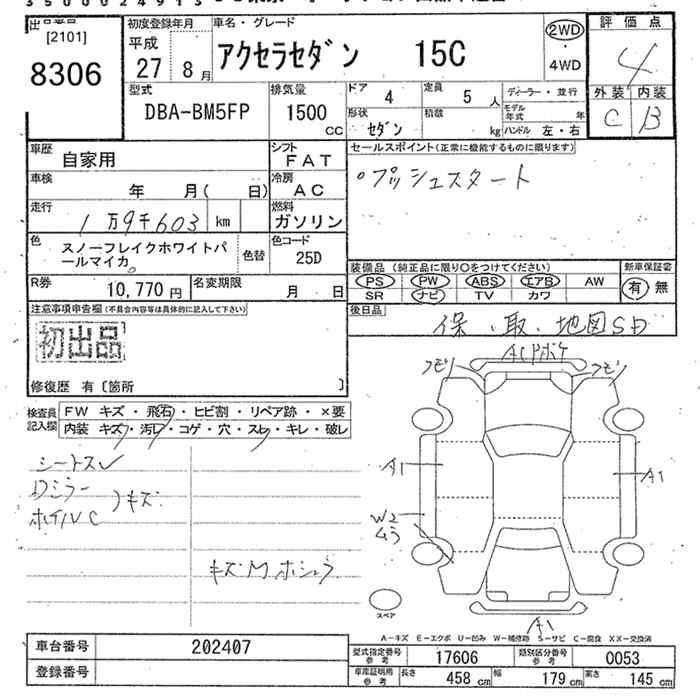 出品番号
[2101]
8306
初度登録年月
平成
27 8月
車名・グレード
アクセラセダン 15C
2WD
・
4WD
評価点
4
外装 内装
C B
型式
DBA-BM5FP
排気量
1500
CC
ドア 4
定員 5 人
ディーラー・並行
形状 セダン
積載 kg
モデル年式 年
ハンドル 左・右
車歴 自家用
シフト FAT
車検 年 月( 日)
冷房 AC
走行 1万9千603 km
燃料 ガソリン
色 スノーフレイクホワイトパールマイカ。
色替
色コード 25D
R券 10,770円
名変期限 月 日
セールスポイント(正常に機能するものに限ります)
・プッシュスタート
装備品(純正品に限り○をつけてください)
PS PW ABS エアB AW
SR ナビ TV カワ
新車保証書
有 無
後日品
保・取・地図SD
注意事項申告欄(不具合内容等は具体的に記入して下さい)
初出品
修復歴 有〔箇所 〕
検査員記入欄
FW キズ・飛石・ヒビ割・リペア跡・×要
内装 キズ・汚レ・コゲ・穴・スレ・キレ・破レ
シートスレ
Dミラー
ホイルC
キズ
キズM ホシュウ
コモリ
コモリ
A1
A1
W2
ムラ
A1
スペア
A-キズ E-エクボ U-凹み W-補修跡 S-サビ C-腐食 XX-交換済
車台番号 202407
登録番号
型式指定番号参考 17606
類別区分番号参考 0053
車庫証明用参考 長さ 458 cm 幅 179 cm 高さ 145 cm